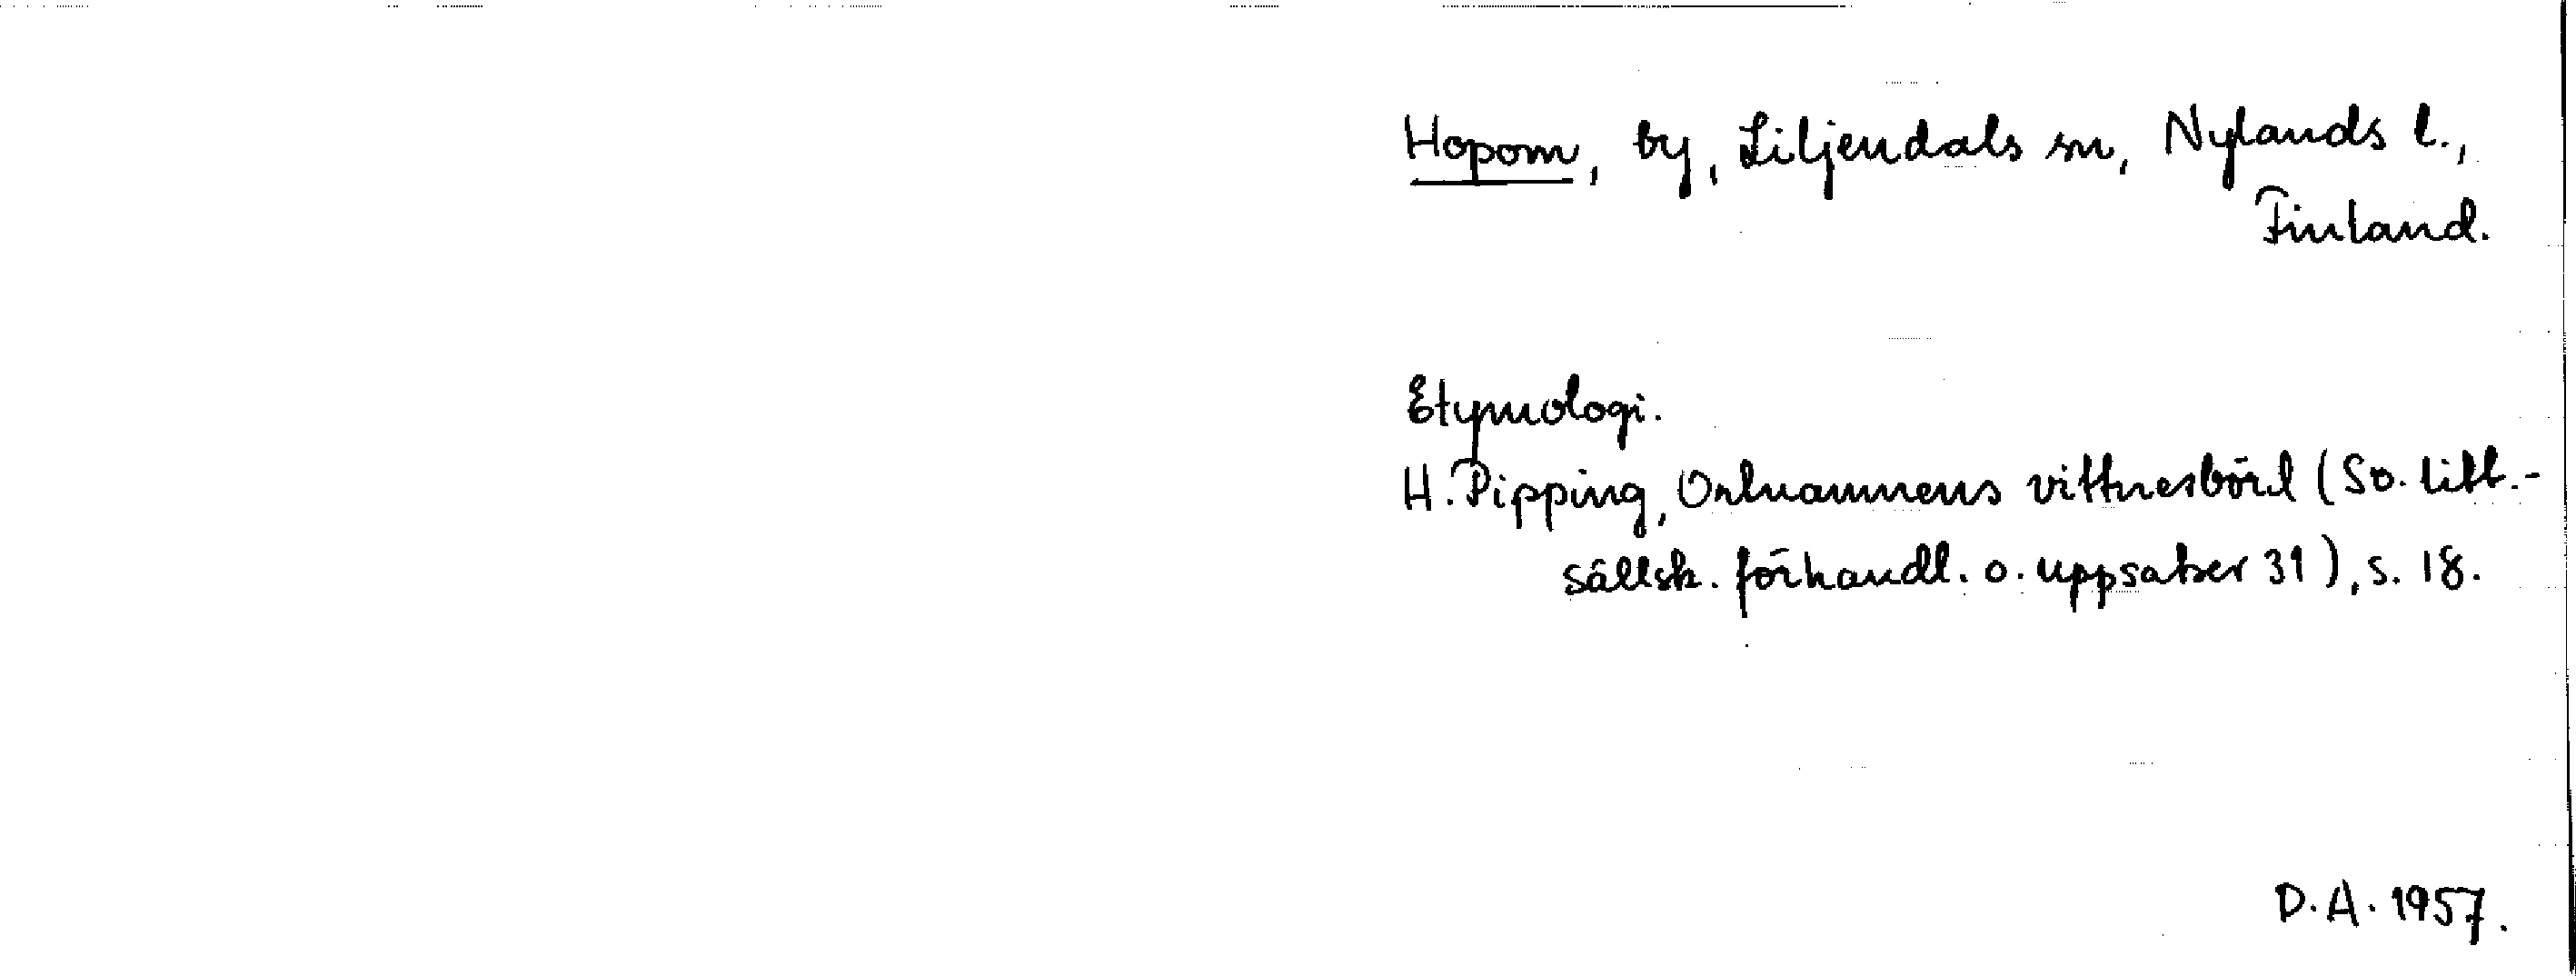 Hopom, by, Liljendals sn, Nylands l.,
Finland.
Etymologi.
H. Pipping, Ortnamnens vittnesbörd (Sv. litt.-
sällsk. förhandl. o. uppsatser 31), s. 18.
D.A. 1957.